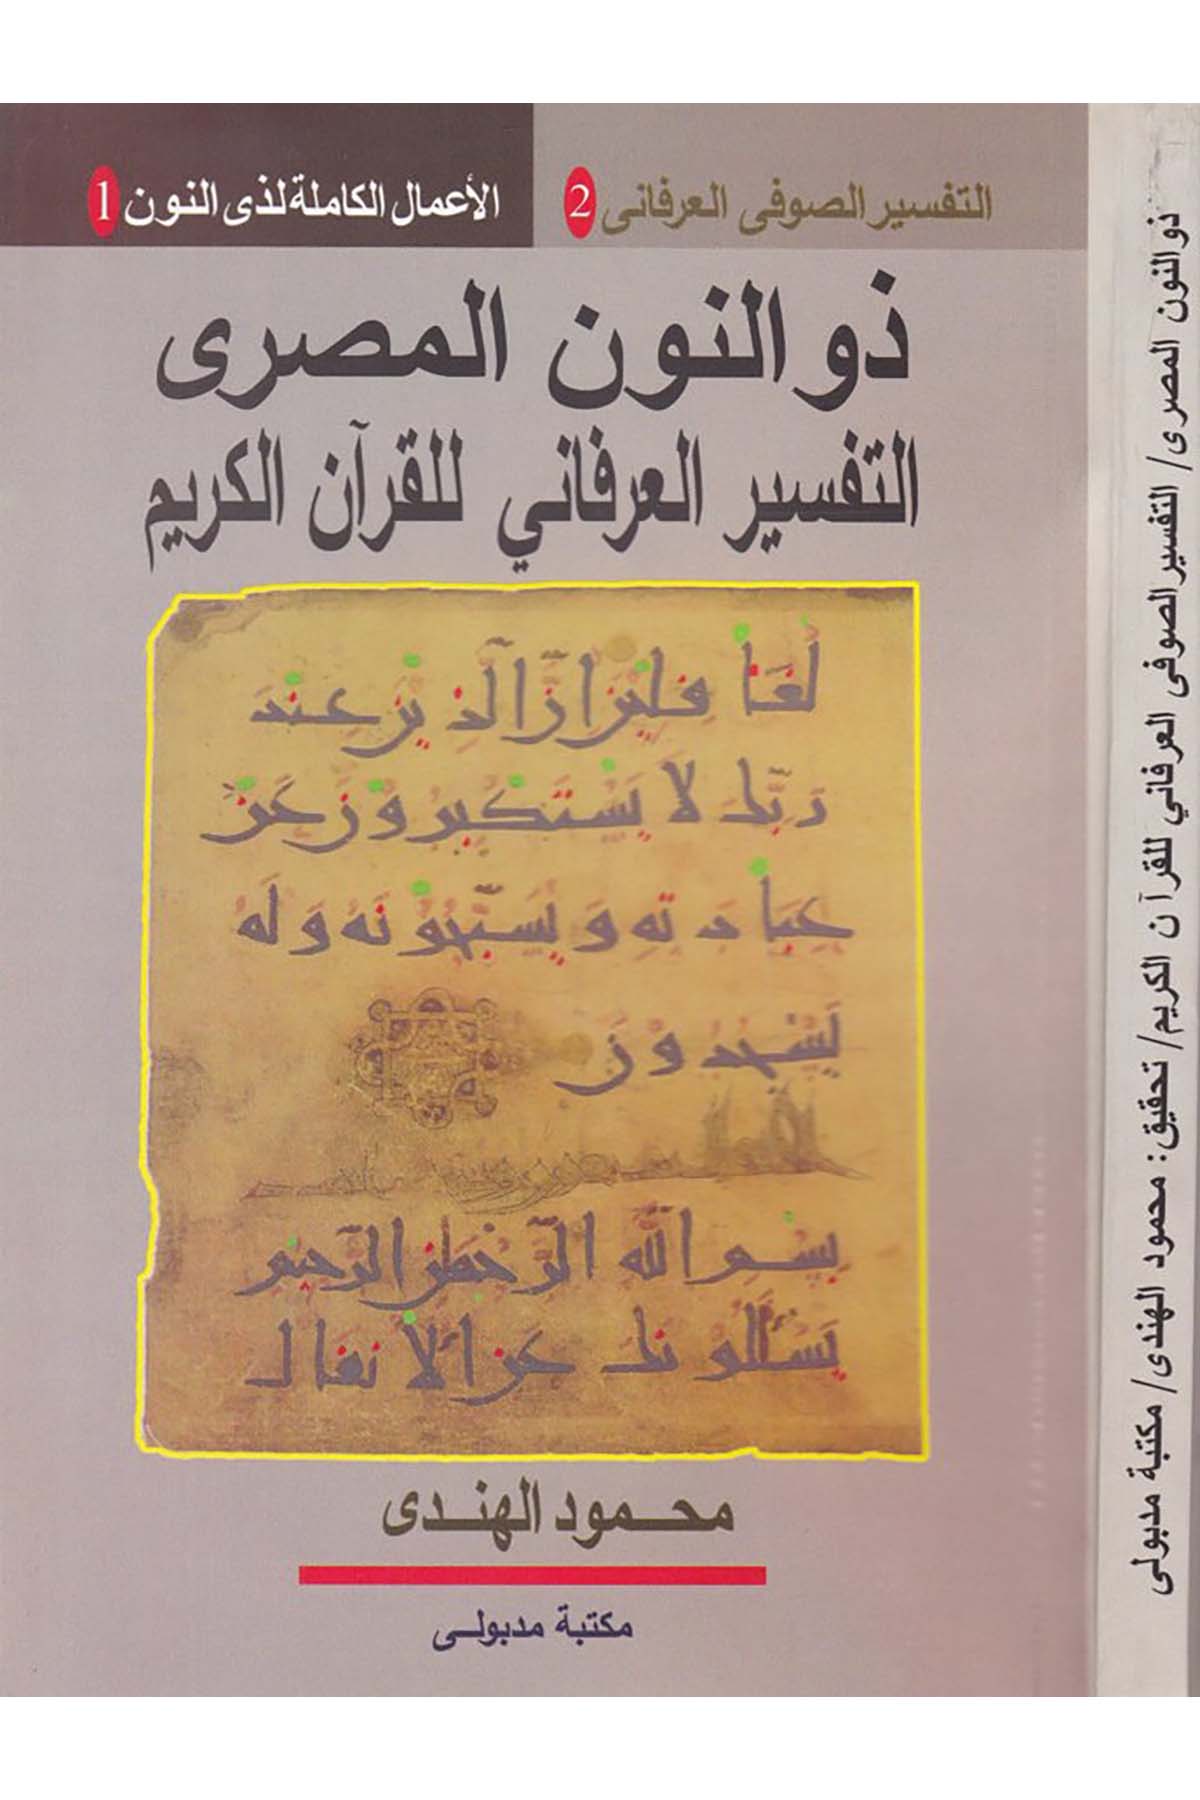 التفسير الصوفى العرفانى 2
الأعمال الكاملة لذى النون 1
ذو النون المصرى
التفسير العرفاني للقرآن الكريم
فليزا ا الذين عند
ربك لا يستكبرون عن
عبادته ويسبحونه وله
يسجدون
بسم الله الرحمن الرحيم
يسألونك عن الأنفال
محمود الهندى
مكتبة مدبولى
ذو النون المصرى/ التفسير الصوفى العرفاني للقرآن الكريم/ تحقيق: محمود الهندى/ مكتبة مدبولى